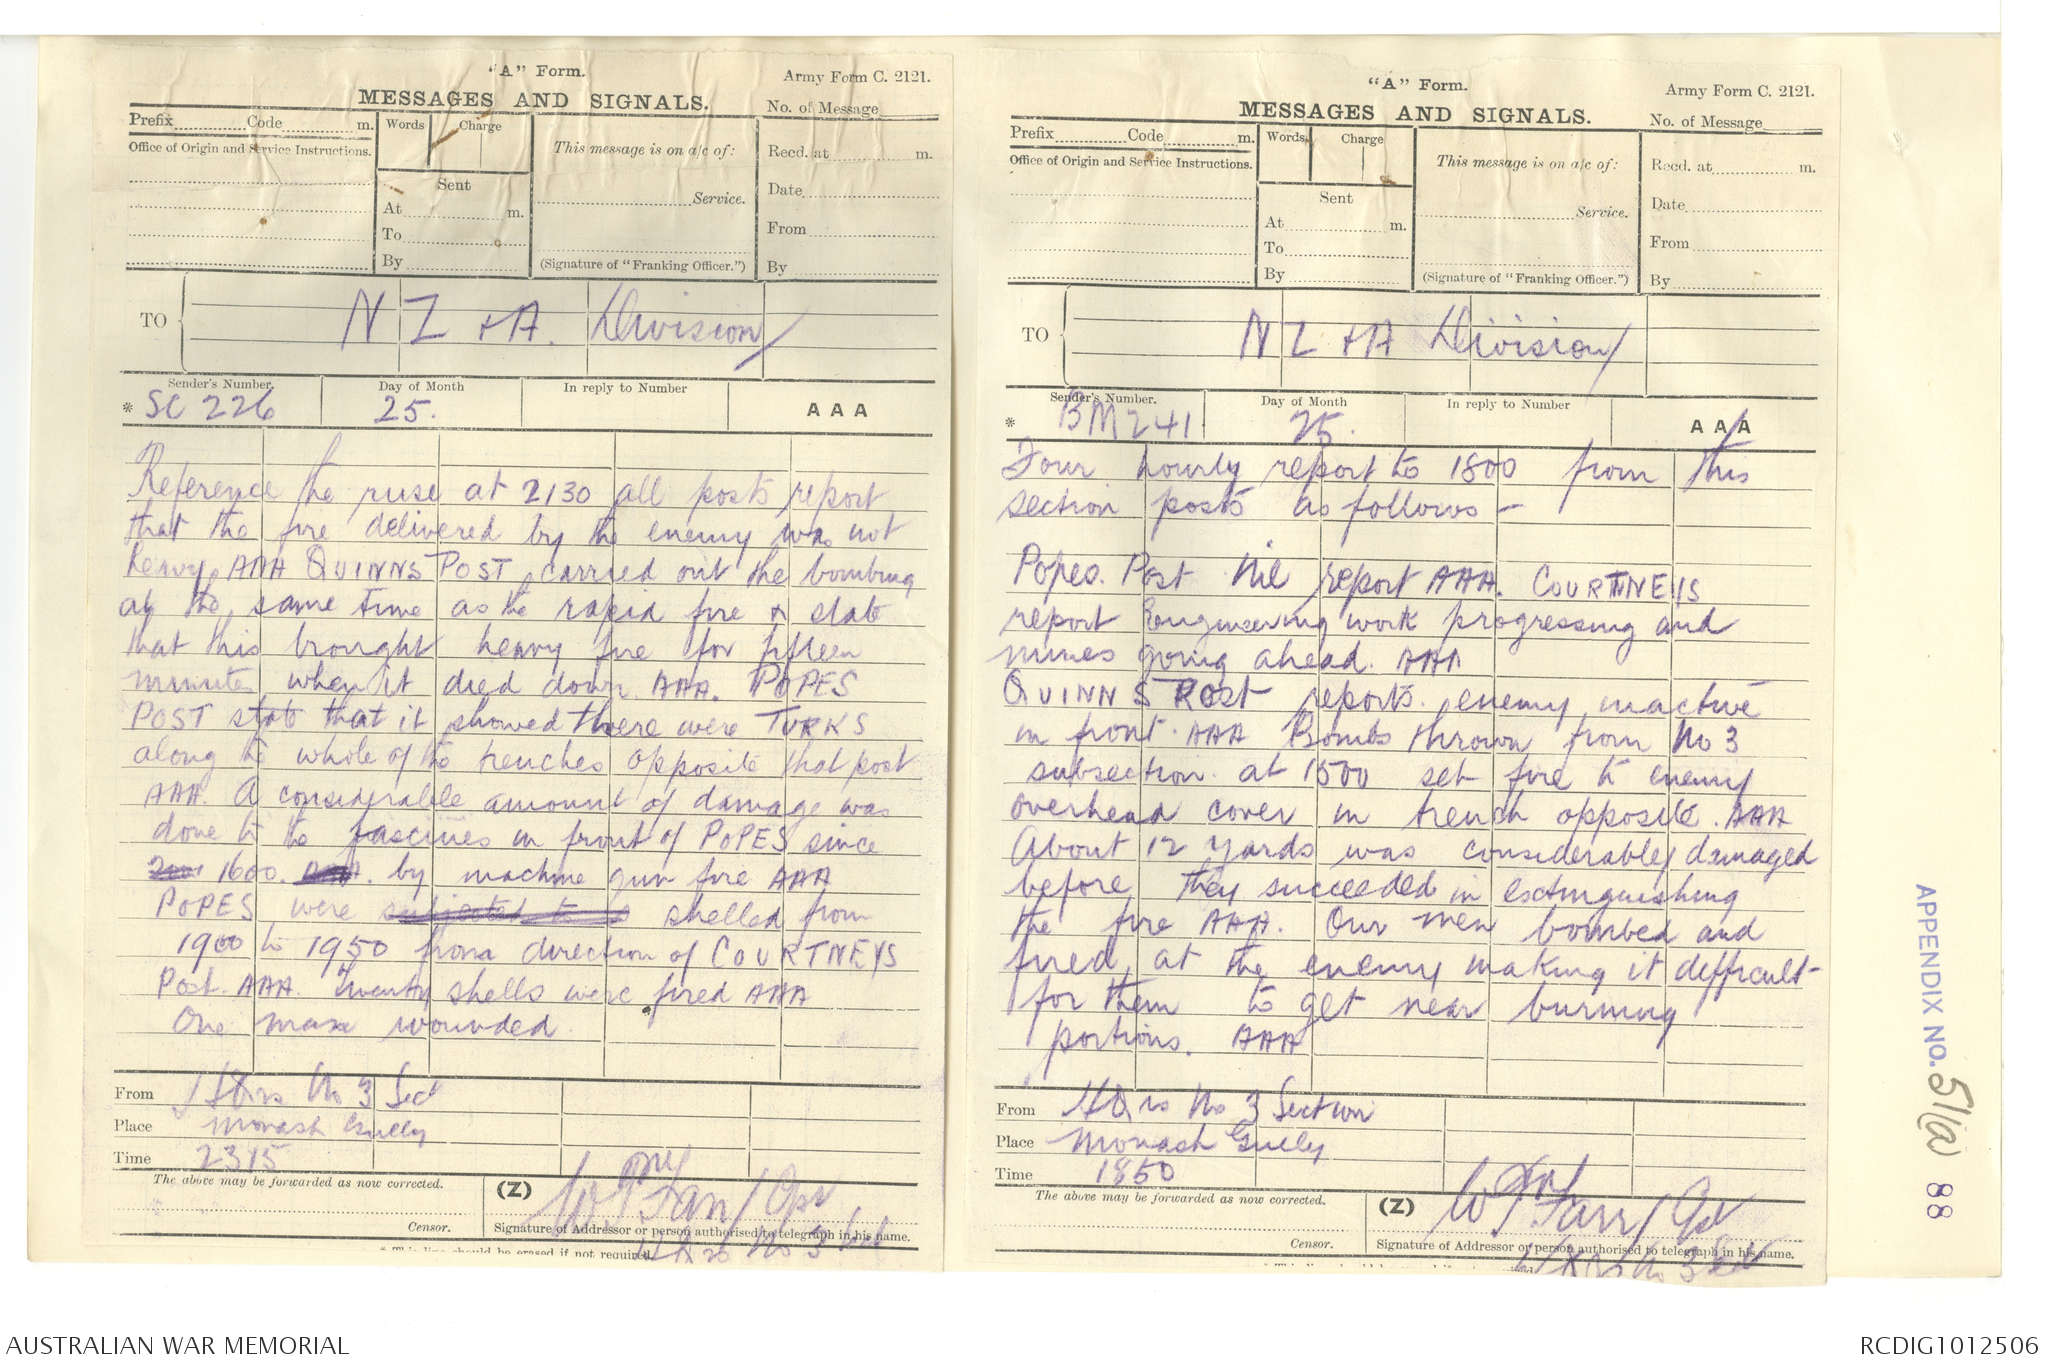 "A" Form.
Army Form C. 2121.
MESSAGES AND SIGNALS.
No. of Message
Prefix Code m.
Words Charge
This message is on a/c of:
Recd. at m.
Office of Origin and Service Instructions.
Sent
Service.
Date
At m.
To
From
By
(Signature of "Franking Officer.")
By
TO
N Z + A. Division
Sender's Number. Day of Month In reply to Number AAA
* SC 226 25.
Reference the ruse at 2130 all posts report
that the fire delivered by the enemy was not
heavy AAA QUINNS POST carried out the bombing
at the same time as the rapid fire & state
that this brought heavy fire for fifteen
minutes when it died down. AAA. POPES
POST state that it showed there were TURKS
along the whole of the trenches opposite that post
AAA. A considerable amount of damage was
done to the fascines in front of POPES since
1600. by machine gun fire AAA
POPES were subjected to shelled from
1900 to 1950 from direction of COURTNEYS
Post. AAA. Twenty shells were fired AAA
One man wounded
From HdQrs No 3 Sect
Place Monash Gully
Time 2315
The above may be forwarded as now corrected. (Z)
Censor. Signature of Addressor or person authorised to telegraph in his name.
* This line should be erased if not required.
No 3
"A" Form.
Army Form C. 2121.
MESSAGES AND SIGNALS.
No. of Message
Prefix Code m.
Words Charge
This message is on a/c of:
Recd. at m.
Office of Origin and Service Instructions.
Sent
Service.
Date
At m.
To
From
By
(Signature of "Franking Officer.")
By
TO
N Z + A Division
Sender's Number. Day of Month In reply to Number AAA
* BM 241 25.
Four hourly report to 1800 from this
section posts as follows -
Popes. Post Nil report AAA. COURTNEYS
report Engineering work progressing and
mines going ahead. AAA
QUINNS Post reports. enemy inactive
in front. AAA Bombs thrown from No 3
subsection. at 1500 set fire to enemy
overhead cover in trench opposite. AAA
About 12 yards was considerably damaged
before they succeeded in extinguishing
the fire AAA. Our men bombed and
fired at the enemy making it difficult
for them to get near burning
portions. AAA
From HdQrs No 3 Section
Place Monash Gully
Time 1850
The above may be forwarded as now corrected. (Z)
W P Farr
Censor. Signature of Addressor or person authorised to telegraph in his name.
APPENDIX NO. 51(a) 88
AUSTRALIAN WAR MEMORIAL
RCDIG1012506